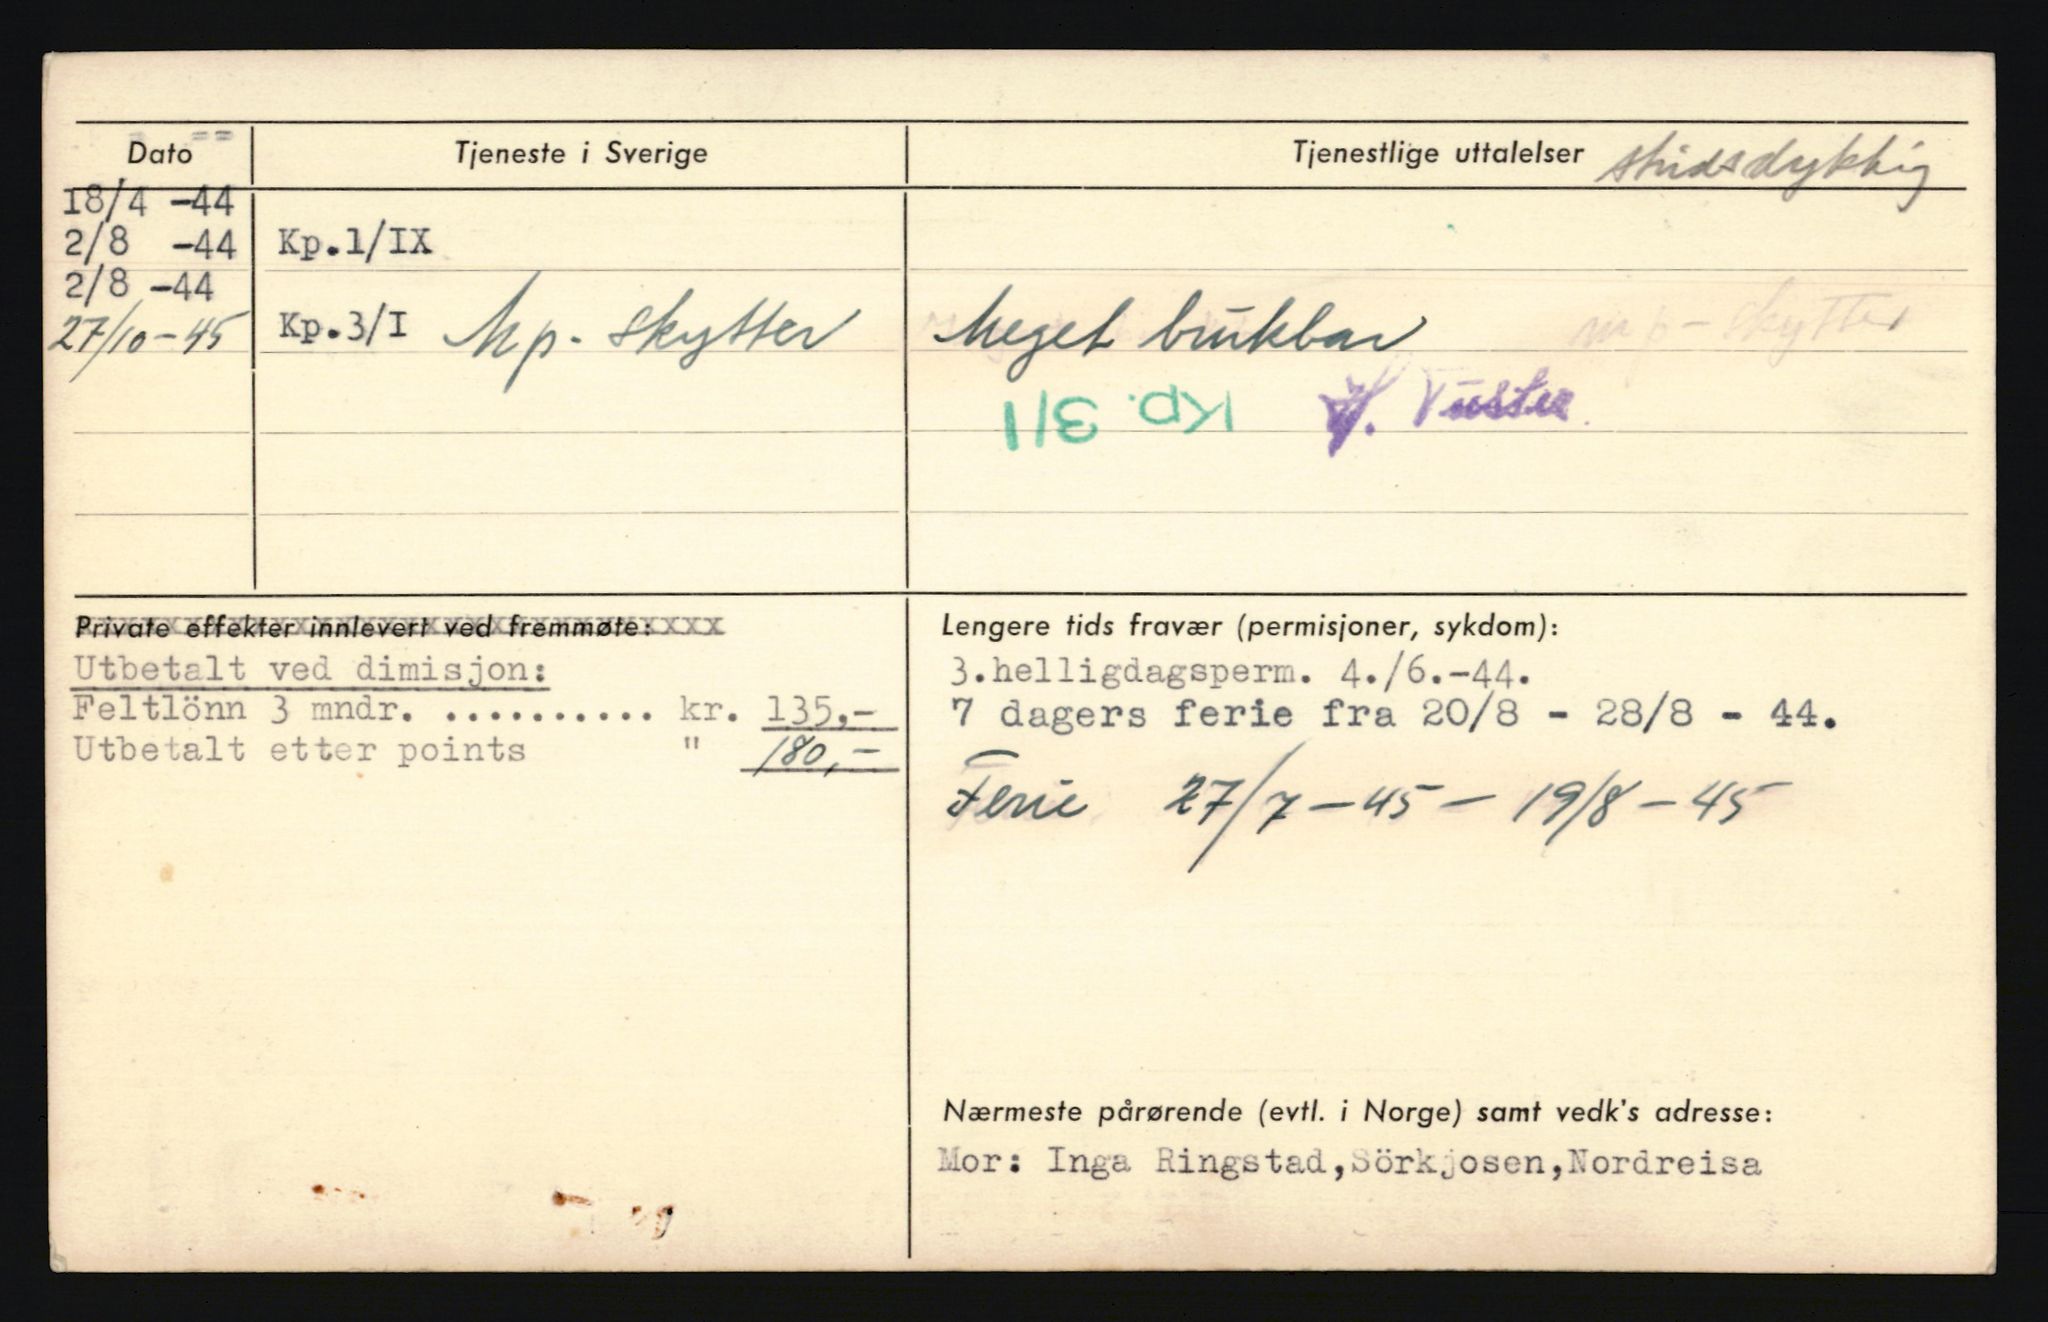 Dato
Tjeneste i Sverige
Tjenestlige uttalelser stridsdyktig
18/4 -44
2/8 -44 Kp.1/IX
2/8 -44
27/10-45 Kp.3/I Mp.-skytter Meget brukbar mp-skytter
Kp. 3/1
Private effekter innlevert ved fremmøte:
Utbetalt ved dimisjon:
Feltlönn 3 mndr. .......... kr. 135,-
Utbetalt etter points " 180,-
Lengere tids fravær (permisjoner, sykdom):
3.helligdagsperm. 4./6.-44.
7 dagers ferie fra 20/8 - 28/8 - 44.
Ferie 27/7-45 - 19/8-45
Nærmeste pårørende (evtl. i Norge) samt vedk's adresse:
Mor: Inga Ringstad,Sörkjosen,Nordreisa